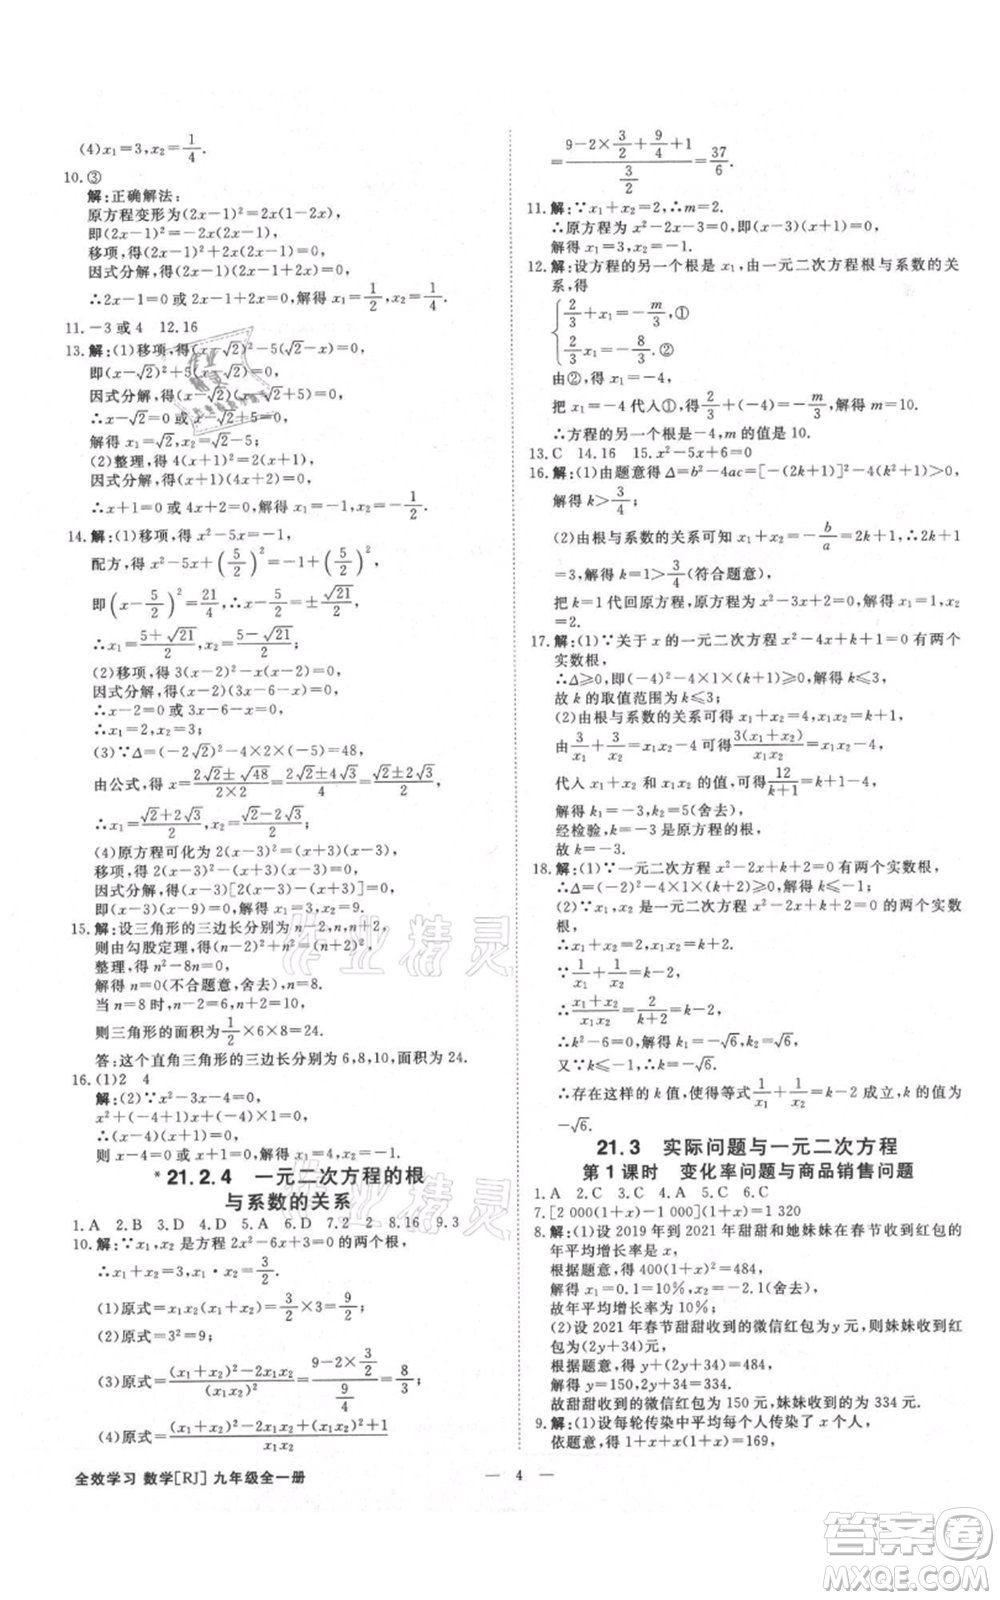 (4)x₁=3,x₂=1/4.
10.③
解:正确解法:
原方程变形为(2x-1)²=2x(2x-1),
即(2x-1)²-2x(2x-1)=0,
移项,得(2x-1)
因式分解,得
∴2x-1=0 或 2x-2=0,解得 x₁=1/2,x₂=
11.-3或4 12.16
13.解:(1)移项,得(x-√2)²-5(√2-x)=0,
即(x-√2)
因式分解,得
∴x-√2=0
解得 x₁=√2,
(2)整理,得 4(x+1)
因式分解,得
∴x+1=0 或 4x+2=0,∴x₁=-1,x₂=-1/2.
14.解:(1)移项,得 x²-5x=-1,
配方,得 x²-5x+(5/2)²=-1+(5/2)²,
即(x-5/2)²=21/4,∴x-5/2=±√21/2,
∴x₁=(5+√21)/2,x₂=(5-√21)/2;
(2)移项,得 3(x-2)²-x(x-2)=0,
因式分解,得(x-2)(3x-6-x)=0,
∴x-2=0 或 3x-6-x=0,
∴x₁=2,x₂=3;
(3)∵Δ=(-2√2)²-4×2×(-5)=48,
由公式,得 x=(2√2±√48)/(2×2)=(2√2±4√3)/4,
∴x₁=(√2+2√3)/2,x₂=(√2-2√3)/2;
(4)原方程可化为 2(x-3)²=(x+3)(x-3),
移项,得 2(x-3)²-(x+3)(x-3)=0,
因式分解,得(x-3)[2(x-3)-(x+3)]=0,
∴x-3=0 或 x-9=0,∴x₁=3,x₂=9.
15.解:设三角形的三边长分别为 n-2,n,n+2,
则由勾股定理,得(n-2)²+n²=(n+2)²,
整理,得 n²-8n=0,
解得 n=0(不合题意,舍去)或 n=8.
当 n=8 时,n-2=6,n+2=10,
则三角形的面积为1/2×6×8=24.
答:这个直角三角形的三边长分别为 6,8,10,面积为 24.
16.(1)2 4
解:(2)∵x²-3x-4=0,
x²+(-4+1)x+(-4)×1=0,
∴(x-4)(x+1)=0,
则 x+1=0 或 x-4=0,解得 x₁=-1,x₂=4.
*21.2.4 一元二次方程的根
与系数的关系
1.A 2.B 3.D 4.A 5.D 6.D 7.2 2 8.16 9.3
10.解:∵x₁,x₂是方程 2x²-6x+3=0 的两个根,
∴x₁+x₂=3,x₁·x₂=3/2.
(1)原式=x₁x₂(x₁+x₂)=3/2×3=9/2;
(2)原式=3²=9;
(3)原式=((x₁+x₂)²-2x₁x₂)/(x₁x₂)²=(9-2×3/2)/(9/4)=8/3;
(4)原式=((x₁+x₂)²-2x₁x₂+(x₁x₂)²+1)/(x₁x₂)
=(9-2×3/2+9/4+1)/(3/2)=37/6.
11.解:∵x₁+x₂=2,∴m=2.
∴原方程为 x²-2x-3=0,即(x-3)(x+1)=0,
解得 x₁=3,x₂=-1.
12.解:设方程的另一个根是 x₁,由一元二次方程根与系数的关
系,得
{2/3+x₁=-m/3,①
2/3x₁=-8/3.②
由②,得 x₁=-4,
把 x₁=-4 代入①,得 2/3+(-4)=-m/3,解得 m=10.
∴方程的另一个根是-4,m 的值是 10.
13.C 14.16 15.x²-5x+6=0
16.解:(1)由题意得 Δ=b²-4ac=[-(2k+1)]²-4(k²+1)>0,
解得 k>3/4;
(2)由根与系数的关系可知 x₁+x₂=-b/a=2k+1,∴2k+1
=3,解得 k=1>3/4(符合题意),
把 k=1 代回原方程,原方程为 x²-3x+2=0,解得 x₁=1,x₂
=2.
17.解:(1)∵关于 x 的一元二次方程 x²-4x+k+1=0 有两个
实数根,
∴Δ≥0,即(-4)²-4×1×(k+1)≥0,解得 k≤3,
故 k 的取值范围为 k≤3;
(2)由根与系数的关系可得 x₁+x₂=4,x₁x₂=k+1,
由3/x₁+3/x₂=x₁x₂-4 可得3(x₁+x₂)/x₁x₂=x₁x₂-4,
代入 x₁+x₂ 和 x₁x₂ 的值,可得12/(k+1)=k+1-4,
解得 k₁=-3,k₂=5(舍去),
经检验,k=-3 是原方程的根,
故 k=-3.
18.解:(1)∵一元二次方程 x²-2x+k+2=0 有两个实数根,
∴Δ=(-2)²-4×1×(k+2)≥0,解得 k≤-1;
(2)∵x₁,x₂ 是一元二次方程 x²-2x+k+2=0 的两个实数
根,
∴x₁+x₂=2,x₁x₂=k+2.
∵1/x₁+1/x₂=k-2,
∴(x₁+x₂)/x₁x₂=2/(k+2)=k-2,
∴k²-6=0,解得 k₁=-√6,k₂=√6.
又∵k≤-1,∴k=-√6.
∴存在这样的 k 值,使得等式1/x₁+1/x₂=k-2 成立,k 值为
-√6.
21.3 实际问题与一元二次方程
第 1 课时 变化率问题与商品销售问题
1.A 2.C 3.A 4.B 5.C 6.C
7.[2 000(1+x)-1 000](1+x)=1 320
8.解:(1)设 2019 年到 2021 年甜甜和她妹妹在春节收到红包的
年平均增长率是 x,
根据题意,得 400(1+x)²=484,
解得 x₁=0.1=10%,x₂=-2.1(舍去),
故年平均增长率为 10%;
(2)设 2021 年春节甜甜收到的微信红包为 y 元,则妹妹收到
红包为(2y+34)元,
依题意,得(2y+34)+y=484,
解得 y=150,∴484-y=334.
故甜甜收到的微信红包为 150 元,妹妹收到的为 334 元.
9.解:(1)设每轮传染中平均每个人传染了 x 个人,
依题意,得 1+x+x(1+x)=169,
全效学习 数学[RJ] 九年级全一册
— 4 —
作业精灵
作业精灵
答案圈
MXQE.COM